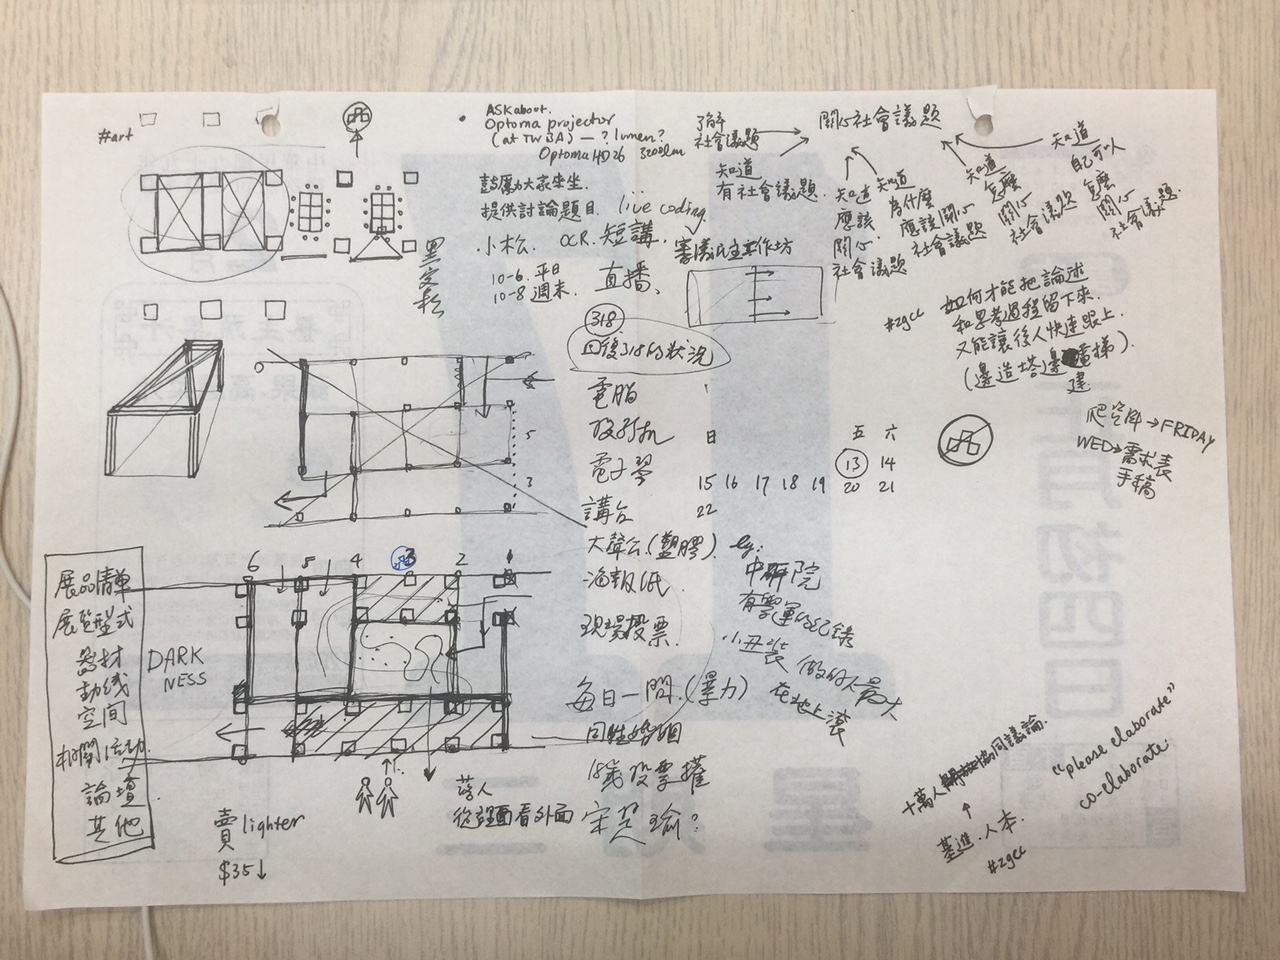 #art
ASK about.
Optoma projector
(at TWBA) — ? lumen?
Optoma HD26 3200lm
鼓勵大家來坐.
提供討論題目.
live coding.
小松. OCR. 短講.
審議民主工作坊
10-6. 平日
10-8 週末.
直播、
了解
社會議題
關心社會議題
知道
有社會議題.
知道
應該
關心
社會議題
知道
為什麼
應該關心
社會議題
知道
怎麼
關心
社會議題
知道
自己可以
怎麼
關心
社會議題.
#zgcc
如何才能把論述
和思考過程留下來.
又能讓後人快速跟上.
(邊造塔邊 電梯).
建
318
回復318的狀況
電腦
電子學
講台
大聲公.(塑膠).
海報紙
現場投票.
每日一問.(暴力)
同性婚姻
18歲投票權
宋楚瑜?
日 五 六
13 14
15 16 17 18 19 20 21
22
爬資料→FRIDAY
WED→需求表
手稿
eg:
中研院
有雲運的紀錄
小丑裝
做的人最大
在地上滾
5
3
6 5 4 3 2 1
展品清單
展覽型式
器材
動線
空間
相關活動.
論壇
其他
DARK
NESS
賣 lighter
$35↓
落人
從裡面看外面
十萬人開放協同議論.
基進.人本.
#zgcc
"please elaborate"
co-elaborate.
正月初四日
星期三